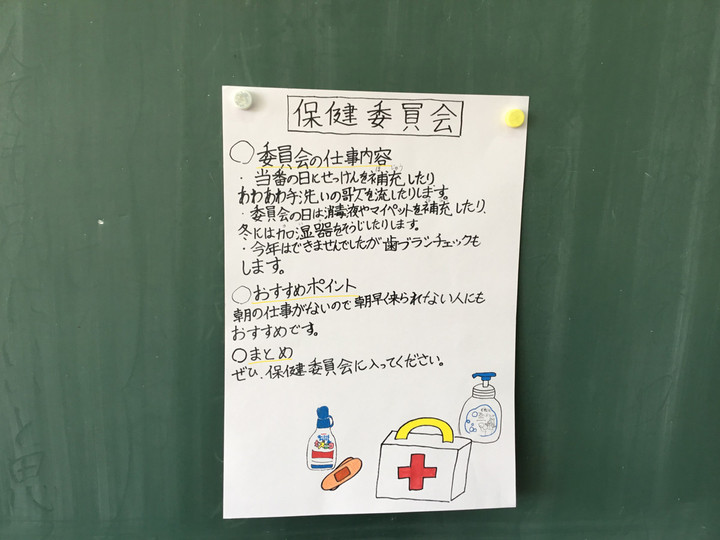 保健委員会
○委員会の仕事内容
・当番の日にせっけんを補充したり
あわあわ手洗いの歌を流したりします。
・委員会の日は消毒液やマイペットを補充したり、
冬には加湿器をそうじしたりします。
・今年はできませんでしたが歯ブラシチェックも
します。
○おすすめポイント
朝の仕事がないので朝早く来られない人にも
おすすめです。
○まとめ
ぜひ、保健委員会に入ってください。